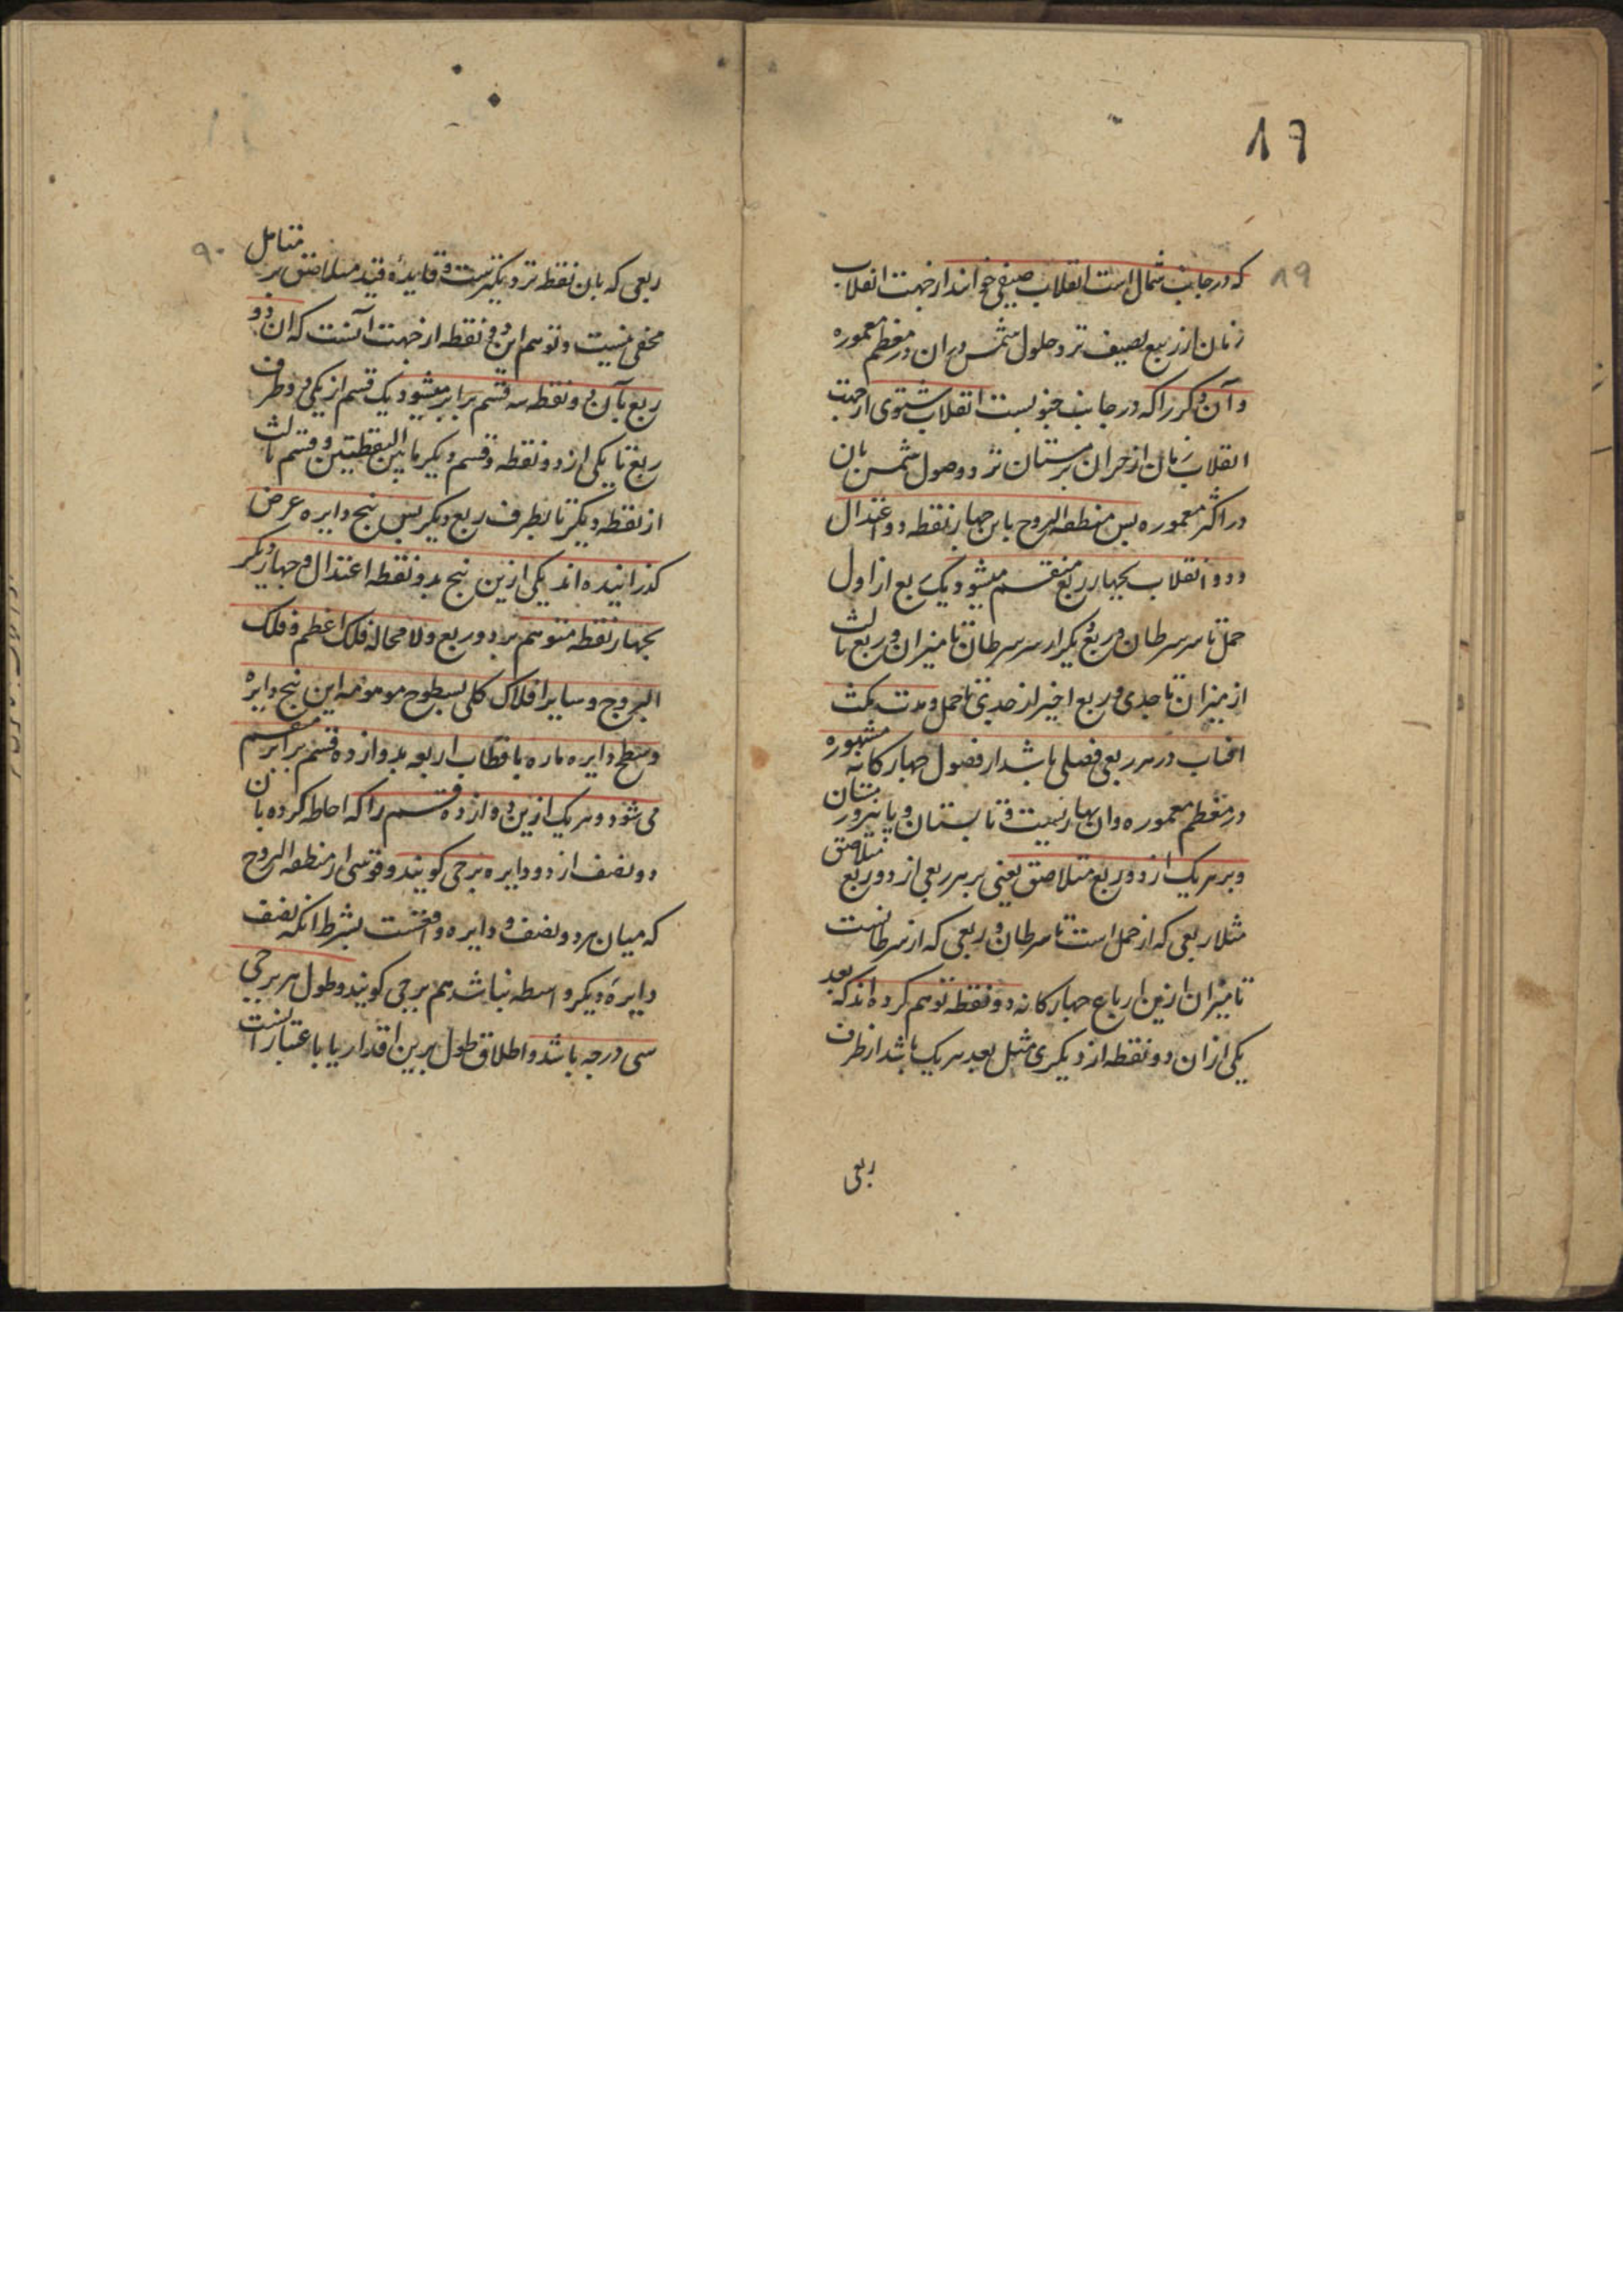 17
19
که در جانب شمال است انقلاب صیفی خوانند از جهت انقلاب
زمان از ربیع بصیف نزد حلول شمس در ان در معظم معموره
و آن دکر را که در جانب جنوبست انقلاب شتوی از جهت
انقلاب زمان از خزان بزمستان نزد وصول شمس بان
در اکثر معموره پس منطقه البروج باین چهار نقطه دو اعتدال
و دو انقلاب بچهار ربع منقسم میشود یک ربع از اول
حمل تا سر سرطان و ربع دیکر از سر سرطان تا میزان و ربع ثالث
از میزان تا جدی و ربع اخیر از جدی تا حمل و مدت مکث
افتاب در هر ربعی فصلی باشد از فصول چهارکانه مشهوره
در معظم معموره وان بهار نیست و تابستان و پائیز و زمستان
و بر هر یک از دو ربع متلاصق یعنی بر هر ربعی از دو ربع متلاصق
مثلا ربعی که از حمل است تا سرطان و ربعی که از سرطانست
تا میزان ازین ارباع چهارکانه دو نقطه توهم کرده‌اند که بعد
یکی از ان دو نقطه از دیکری مثل بعد هر یک باشد از طرف
ربعی
۹۰
ربعی که بان نقطه نزدیکترست و فایدهٔ قید متلاصق بر متامل
مخفی نیست و توهم این دو نقطه از جهت آنست که ان دو
ربع بآن دو نقطه سه قسم برابر میشود یک قسم از یکی دو طرف
ربع تا یکی از دو نقطه و قسم دیکر ما بین النقطتین و قسم ثالث
از نقطه دیکر تا بطرف ربع دیکر پس پنج دایره عرض
کذرانیده اند یکی ازین پنج بدو نقطه اعتدال و چهار دیکر
بچهار نقطه متوهم بر دو ربع و لا محاله فلک اعظم و فلک
البروج و سایر افلاک کلی بسطوح موهومه این پنج دایره
و سطح دایره ماره باقطاب اربعه بدوازده قسم برابر منقسم
می شود و هر یک ازین دوازده قسم را که احاطه کرده بان
دو نصف از دو دایره برجی کویند و قوسی از منطقه البروج
که میان هر دو نصف دو دایره واقعست بشرط انکه نصف
دایرهٔ دیکر واسطه نباشد هم برجی کویند و طول هر برجی
سی درجه باشد و اطلاق طول برین اقدار یا باعتبار انست